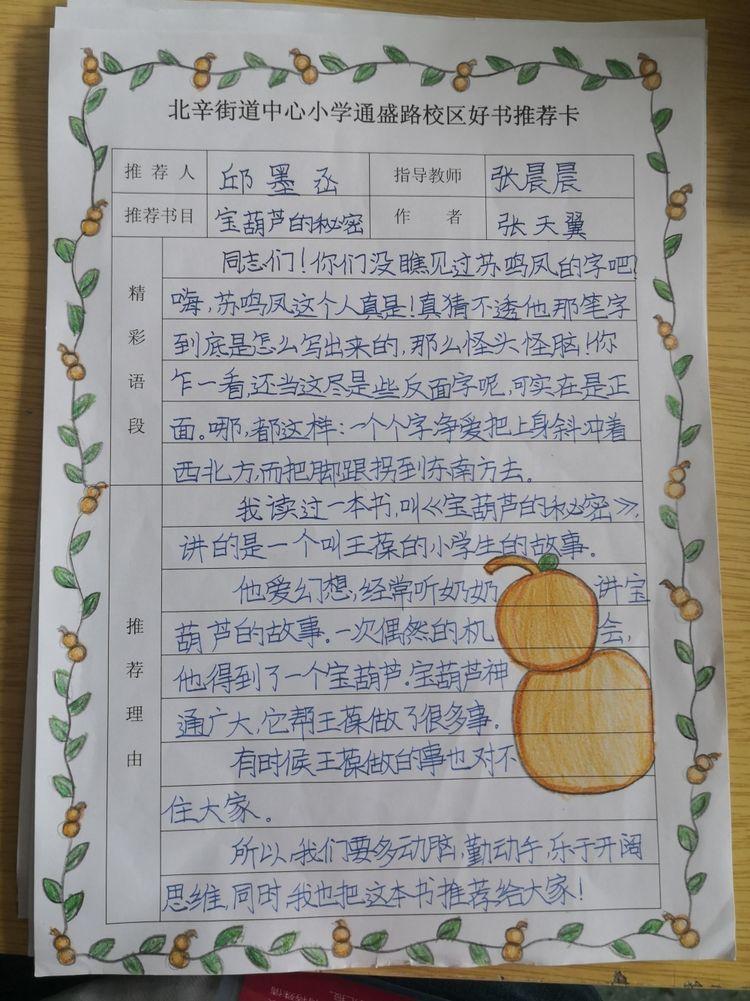 北辛街道中心小学通盛路校区好书推荐卡
推荐人 邱墨丞 指导教师 张晨晨
推荐书目 宝葫芦的秘密 作者 张天翼
精彩语段
同志们！你们没瞧见过苏鸣凤的字吧？
嗨，苏鸣凤这个人真是！真猜不透他那笔字
到底是怎么写出来的，那么怪头怪脑！你
乍一看，还当这尽是些反面字呢，可实在是正
面。哪，都这样：一个个字净爱把上身斜冲着
西北方，而把脚跟拐到东南方去。
推荐理由
我读过一本书，叫《宝葫芦的秘密》，
讲的是一个叫王葆的小学生的故事。
他爱幻想，经常听奶奶讲宝
葫芦的故事。一次偶然的机会，
他得到了一个宝葫芦。宝葫芦神
通广大，它帮王葆做了很多事。
有时候王葆做的事也对不
住大家。
所以，我们要多动脑，勤动手，乐于开阔
思维，同时我也把这本书推荐给大家！